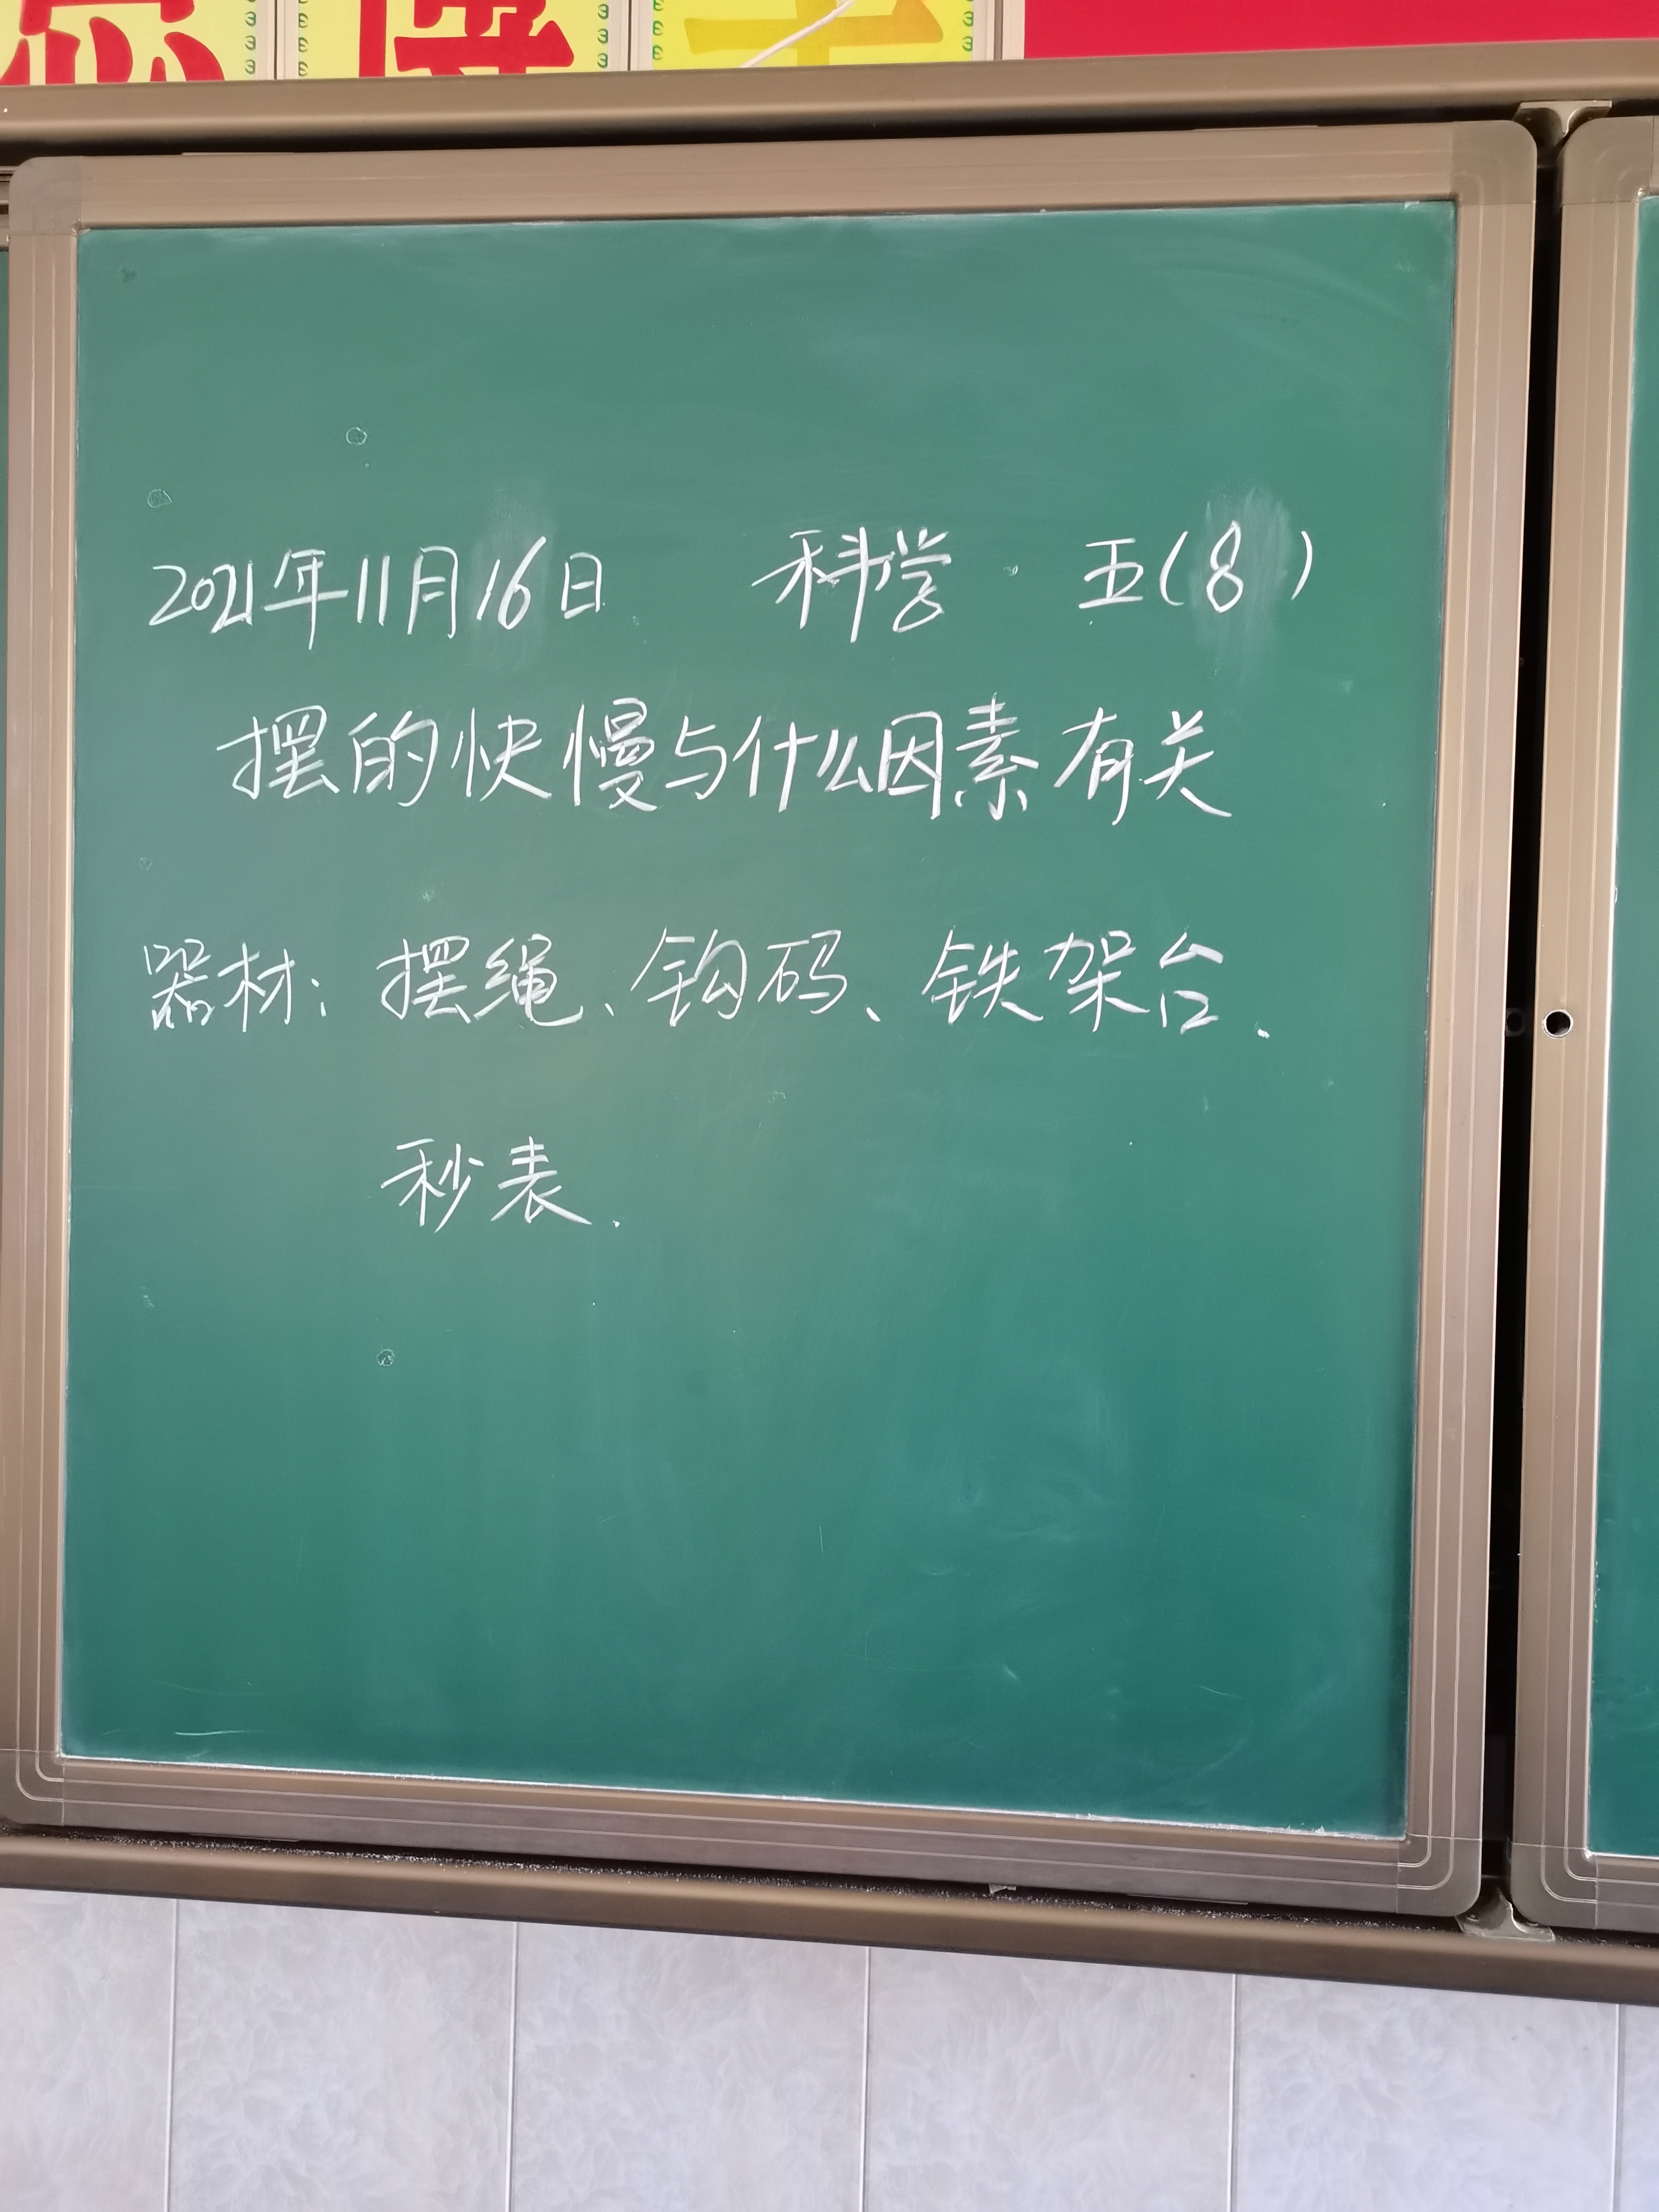 2021年11月16日 科学 五(8)
摆的快慢与什么因素有关
器材:摆绳、钩码、铁架台、
秒表.